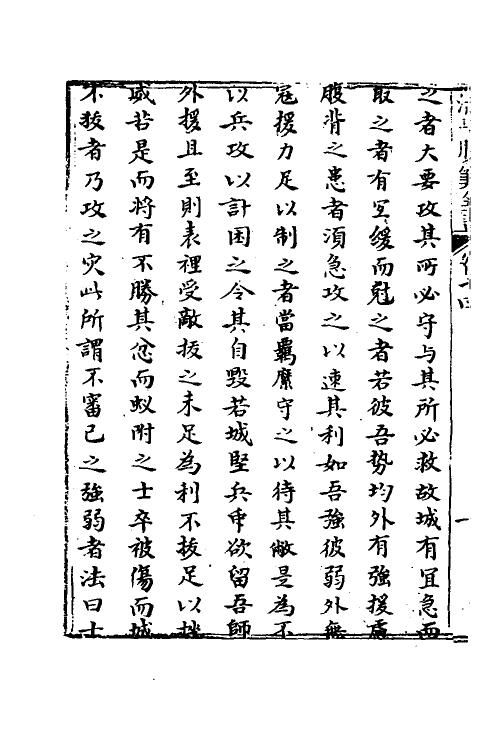 之者大要攻其所必守与其所必救故城有宜急而
取之者有宜緩而尅之者若彼吾势均外有強援慮
腹背之患者須急攻之以速其利如吾強彼弱外無
寇援力足以制之者當羈縻守之以待其敝是為不
以兵攻以計困之令其自毀若城堅兵牢欲留吾師
外援且至則表裡受敵拔之未足為利不拔足以挫
威若是而將有不勝其忿而蚁附之士卒被傷而城
不拔者乃攻之灾此所謂不審己之強弱者法曰士